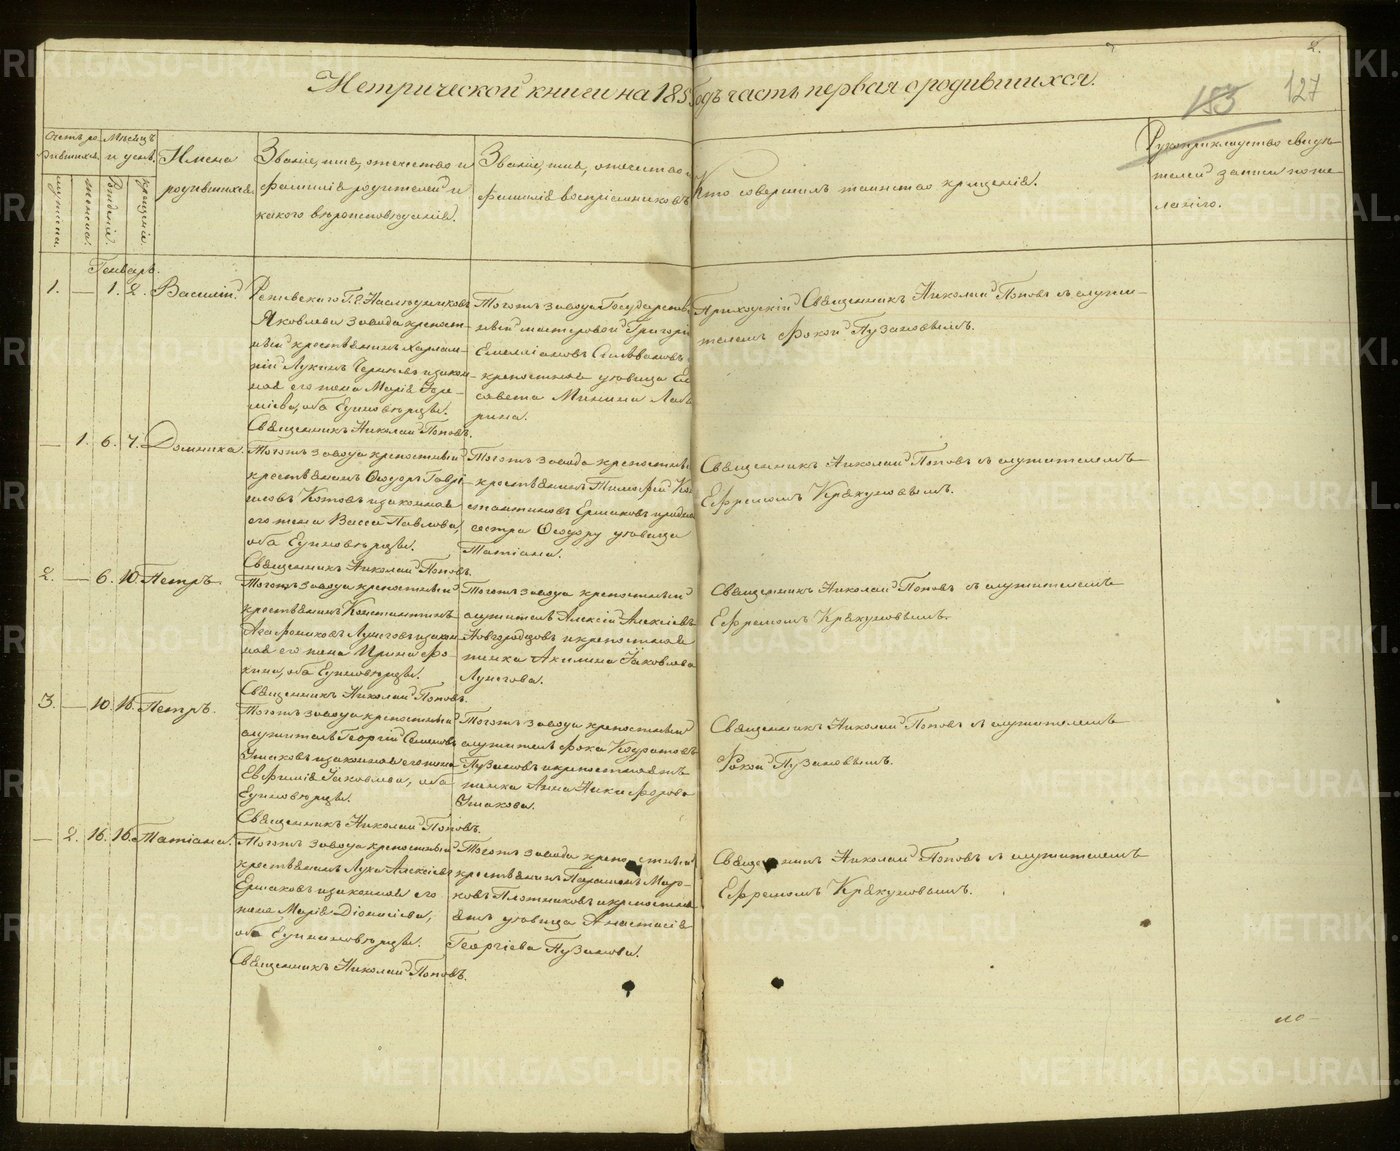 2.
Метрической книги на 185 годъ часть первая о родившихся.
153
127
Счетъ ро-
дившихся.
Мѣсяцъ
и день.
Имена
родившихся.
Званіе, имя, отечество и
фамилія родителей и
какого вѣроисповѣданія.
Званіе, имя, отчество и
фамилія воспріемниковъ
Кто совершилъ таинство крещенія.
Рукоприкладство свидѣ-
телей записи по же-
ланію.
мужеска.
женска.
рожденія.
крещенія.
Генварь.
1. — 1. 2. Василій.
Режевскаго Г. Наслѣдниковъ
Яковлева завода крѣпост-
ный крестьянинъ Харлам-
пій Лукинъ и закон-
ная его жена Марія Ере-
міева, оба Единовѣрцы.
Священникъ Николай Поповъ.
Тогожъ завода Государстве
ный мастеровой Григорій
Емельяновъ и
крѣпостная удовица Ели
савета Минина
рина.
Приходскій Священникъ Николай Поповъ съ служи-
телемъ Фокой Пузановымъ.
— 1. 6. 7. Домника.
Тогожъ завода крѣпостный
крестьянинъ Ѳеодоръ Гаврі-
иловъ Котовъ и законная
его жена Васса Павлова,
оба Единовѣрцы.
Священникъ Николай Поповъ.
Тогожъ завода крѣпостный
крестьянинъ Тимофей Кон
стантиновъ Ермаковъ и родная
сестра Ѳеодору удовица
Татіана.
Священникъ Николай Поповъ съ служителемъ
Ефремомъ Кракуновымъ.
2. — 6. 10. Петръ.
Тогожъ завода крѣпостный
крестьянинъ Константинъ
Агафониковъ Лунеговъ и закон
ная его жена Ирина Фо-
кина, оба Единовѣрцы.
Священникъ Николай Поповъ.
Тогожъ завода крѣпостный
служитель Алексій Алексіевъ
Новгородцовъ и крѣпостная
женка Акилина Іаковлева
Лунегова.
Священникъ Николай Поповъ съ служителемъ
Ефремомъ Кракуновымъ.
3. — 10. 16. Петръ.
Тогожъ завода крѣпостный
служитель Георгій Семеновъ
Ушаковъ и законная его жена
Евфимія Іаковлева, оба
Единовѣрцы.
Священникъ Николай Поповъ.
Тогожъ завода крѣпостный
служитель Фока Кодратовъ
Пузановъ и крѣпостная
женка Анна Никифорова
Ушакова.
Священникъ Николай Поповъ съ служителемъ
Фокой Пузановымъ.
— 2. 16. 16. Татіана.
Тогожъ завода крѣпостный
крестьянинъ Лука Алексіевъ
Ермаковъ и законная его
жена Марія Діонисіева,
оба Единовѣрцы.
Священникъ Николай Поповъ.
Тогожъ завода крѣпостный
крестьянинъ Парамонъ Мар-
ковъ Плотниковъ и крѣпостная
удовица Анастасія
Георгіева Пузанова.
Священникъ Николай Поповъ съ служителемъ
Ефремомъ Кракуновымъ.
METRIKI.GASO-URAL.RU